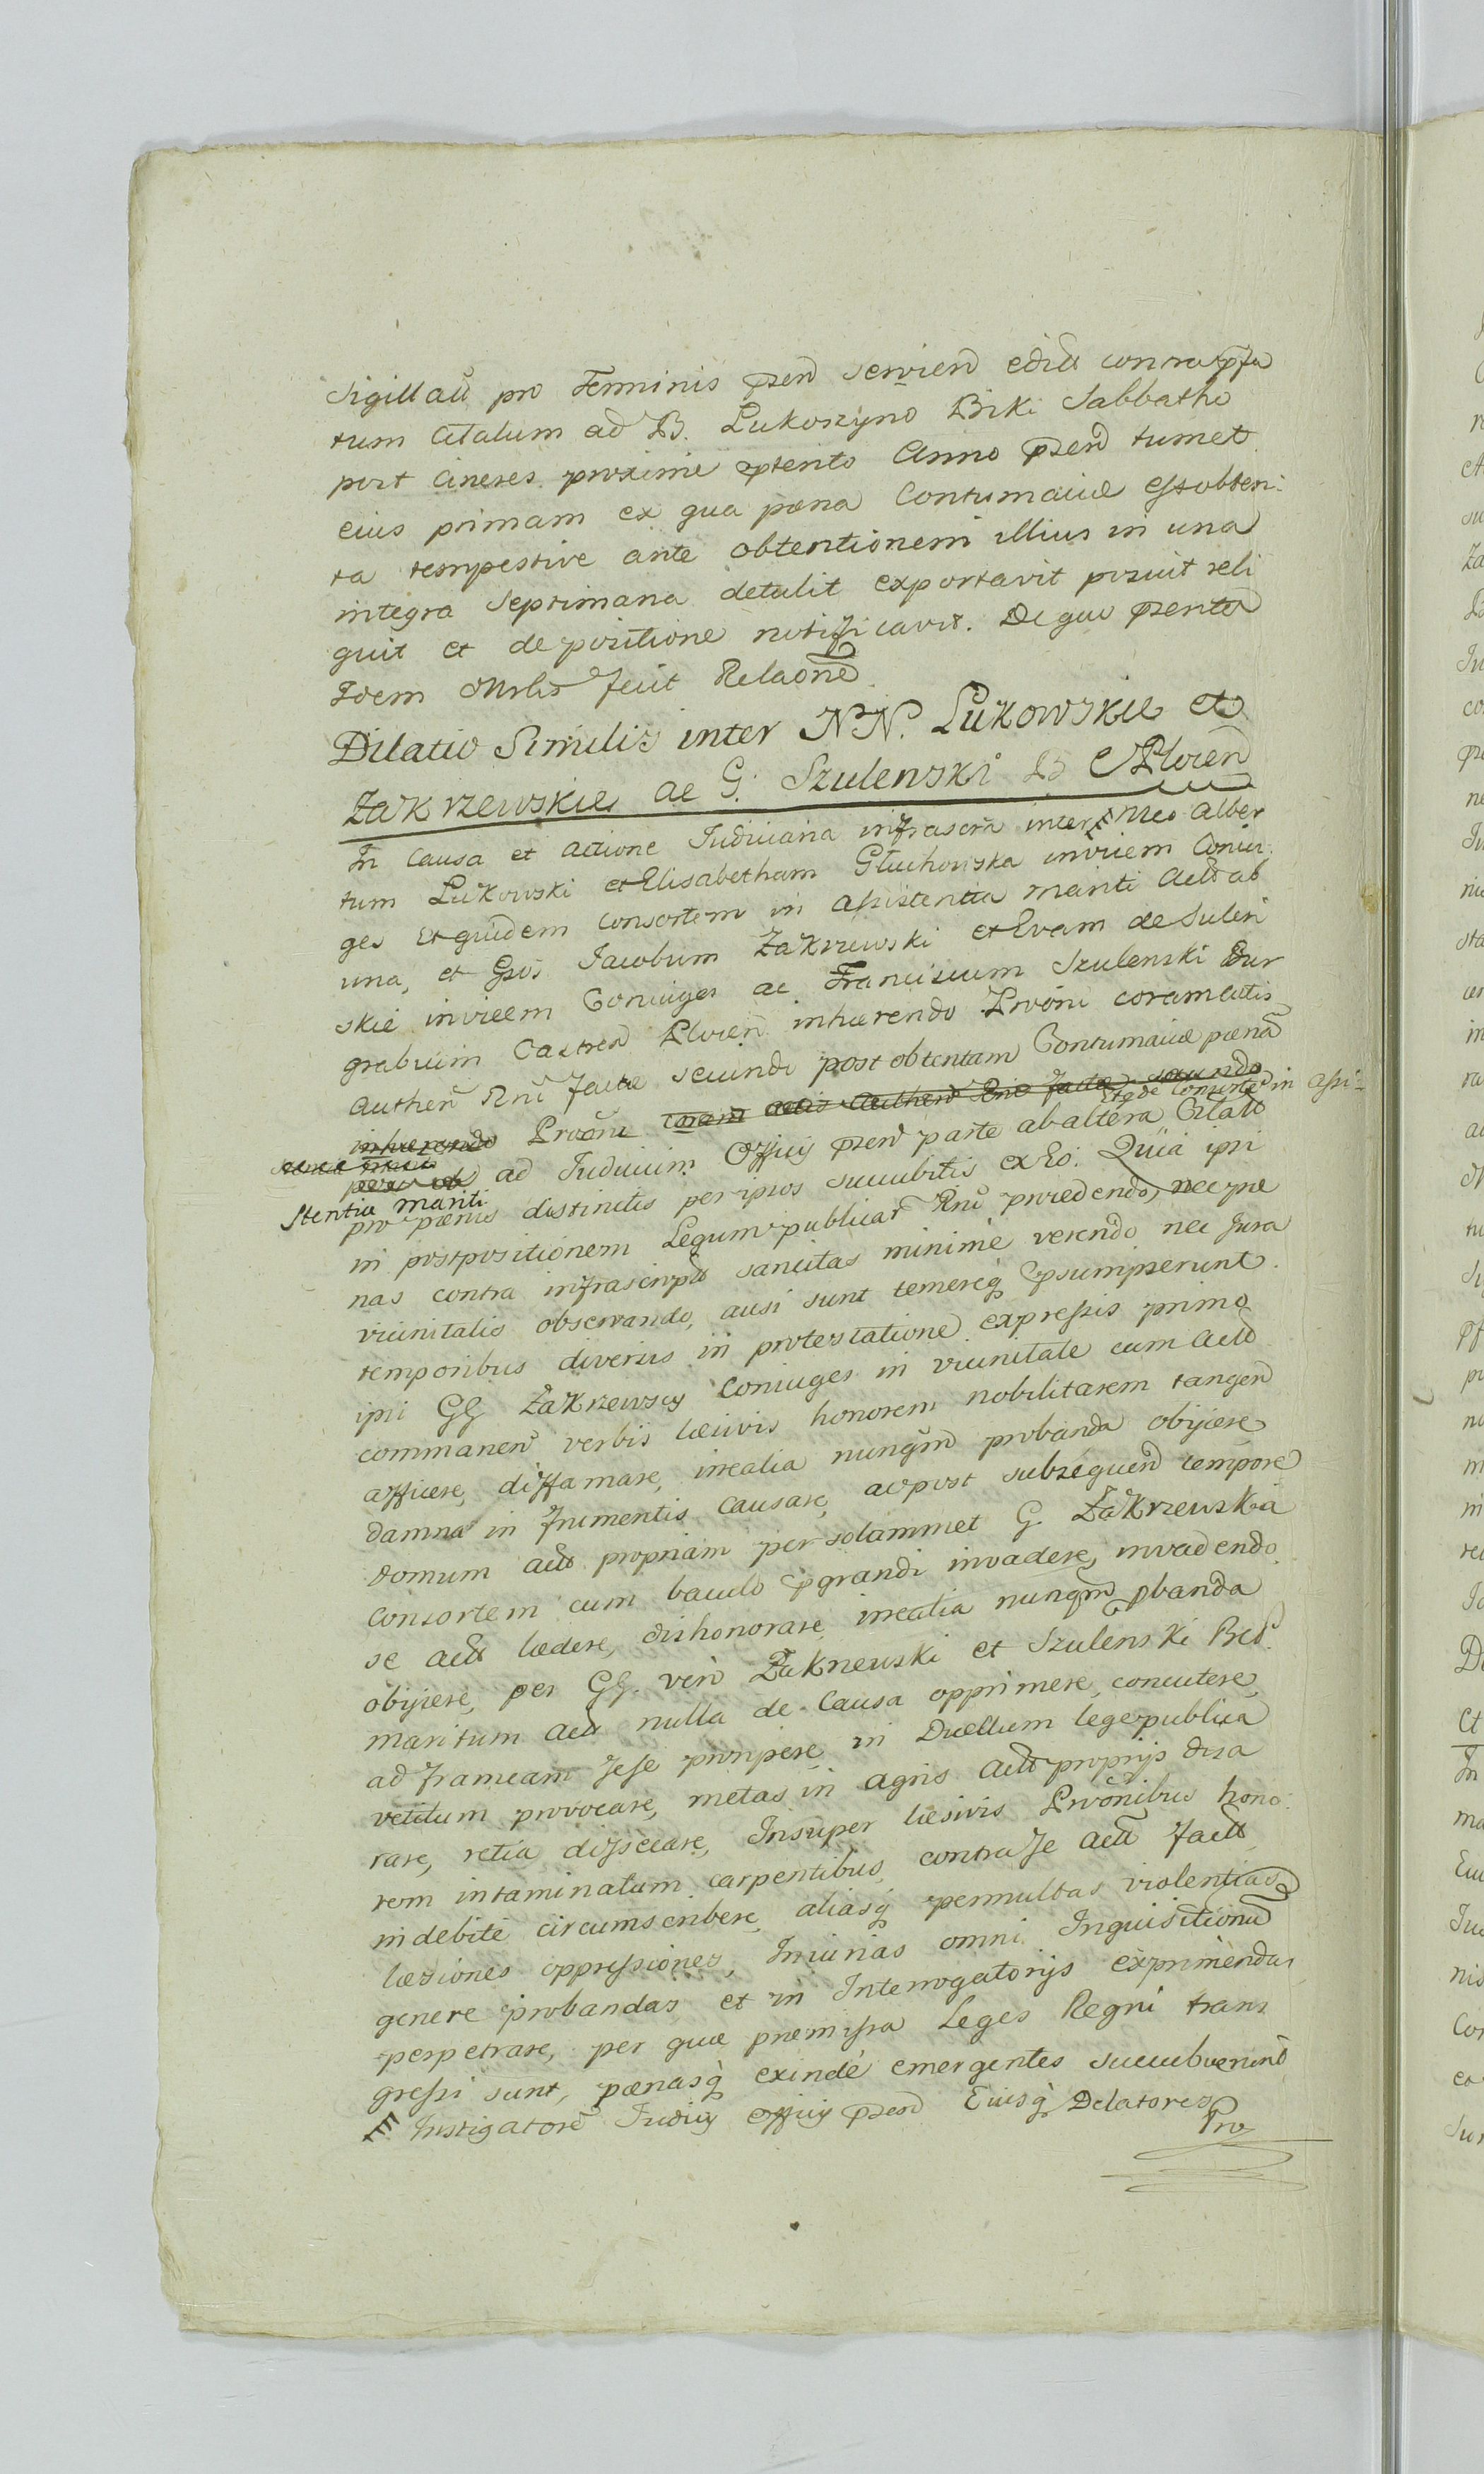 Sigillatt pro Terminis psen servien editt contra psa
tum Citatum ad B. Lukoszyno Biki Sabbatho
post Cineres proxime pterito Anno psen tumet
eius primam ex qua pœna Contumaciæ est obten:
ta tempestive ante obtentionem illius in una
integra Septimana detulit exportavit posuit reli
quit et de positione notificavit. De quo psenta
Idem Mrlis fecit Relaonē.
Dilatio Similis inter NN. Lukowskie et
Zakrzewskie ac G. Szulenski B Ploceñ
In Causa et actione Judiciaria infrascra inter Neo Alber
tum Lukowski et Elisabetham Głuchowska invicem Coniu:
ges Et quidem Consortem in assistentia mariti Actt ab
una, et Gsos Jacobum Zakrzewski et Evam de Sulen
skie invicem Coniuges ac Franciscum Szulenski Bur
grabium Castren Plocen inhærendo Prooni coram actis
Authen Rni factæ secundæ post obtentam Contumaciæ pœnā
inhærendo Prooni coram actis Authen Rni factæ secundo
Et de Consorte in assi=
ad Judicium Officij psen parte ab altera, Citatt
stentia mariti
pro pœnis distinctis per ipsos succubitis ex Eo. Quia ipsi
in postpositionem Legum publicar Rni procedendo, nec pœ
nas contra infrascripta sancitas minime verendo nec Jura
vicinitatis observando, ausi sunt temereq̃ psumpserunt.
temporibus diversis in protestatione expressis primo
ipsi GG Zakrzewscy Coniuges in vicinitate cum Actt
commanen verbis læsivis honorem nobilitarem tangen
afficere, diffamare, irrealia nunqm probanda obijcere
damna in frumentis causare, ac post subsequen tempore
domum actt propriam per solammet G. Zakrzewska
Consortem cum baculo pgrandi invadere, invadendo
se actt lædere, dishonorare irrealia nunqm pbanda
obijcere, per GG. vero Zakrzewski et Szulenski Bcd.
maritum actt nulla de Causa opprimere, concutere,
ad frameam sese proripere in Duellum lege publica
vetitum provocare, metas in agris actt proprijs disa
rare, retia dissecare, Insuper læsivis Proonibus hono:
rem intaminatum carpentibus, contra se actt factt
indebite circumscribere, aliasq̃ permultas violentias
læsiones oppressiones, Iniurias omni Inquisitionū
genere probandas et in Interrogatorijs exprimendas
perpetrare, per quæ præmissa Leges Regni trans
gressi sunt, pœnasq̃ exinde emergentes succubuerunt
Instigatorē Judicij Officij psen Eiusq̃ Delatores
Pro